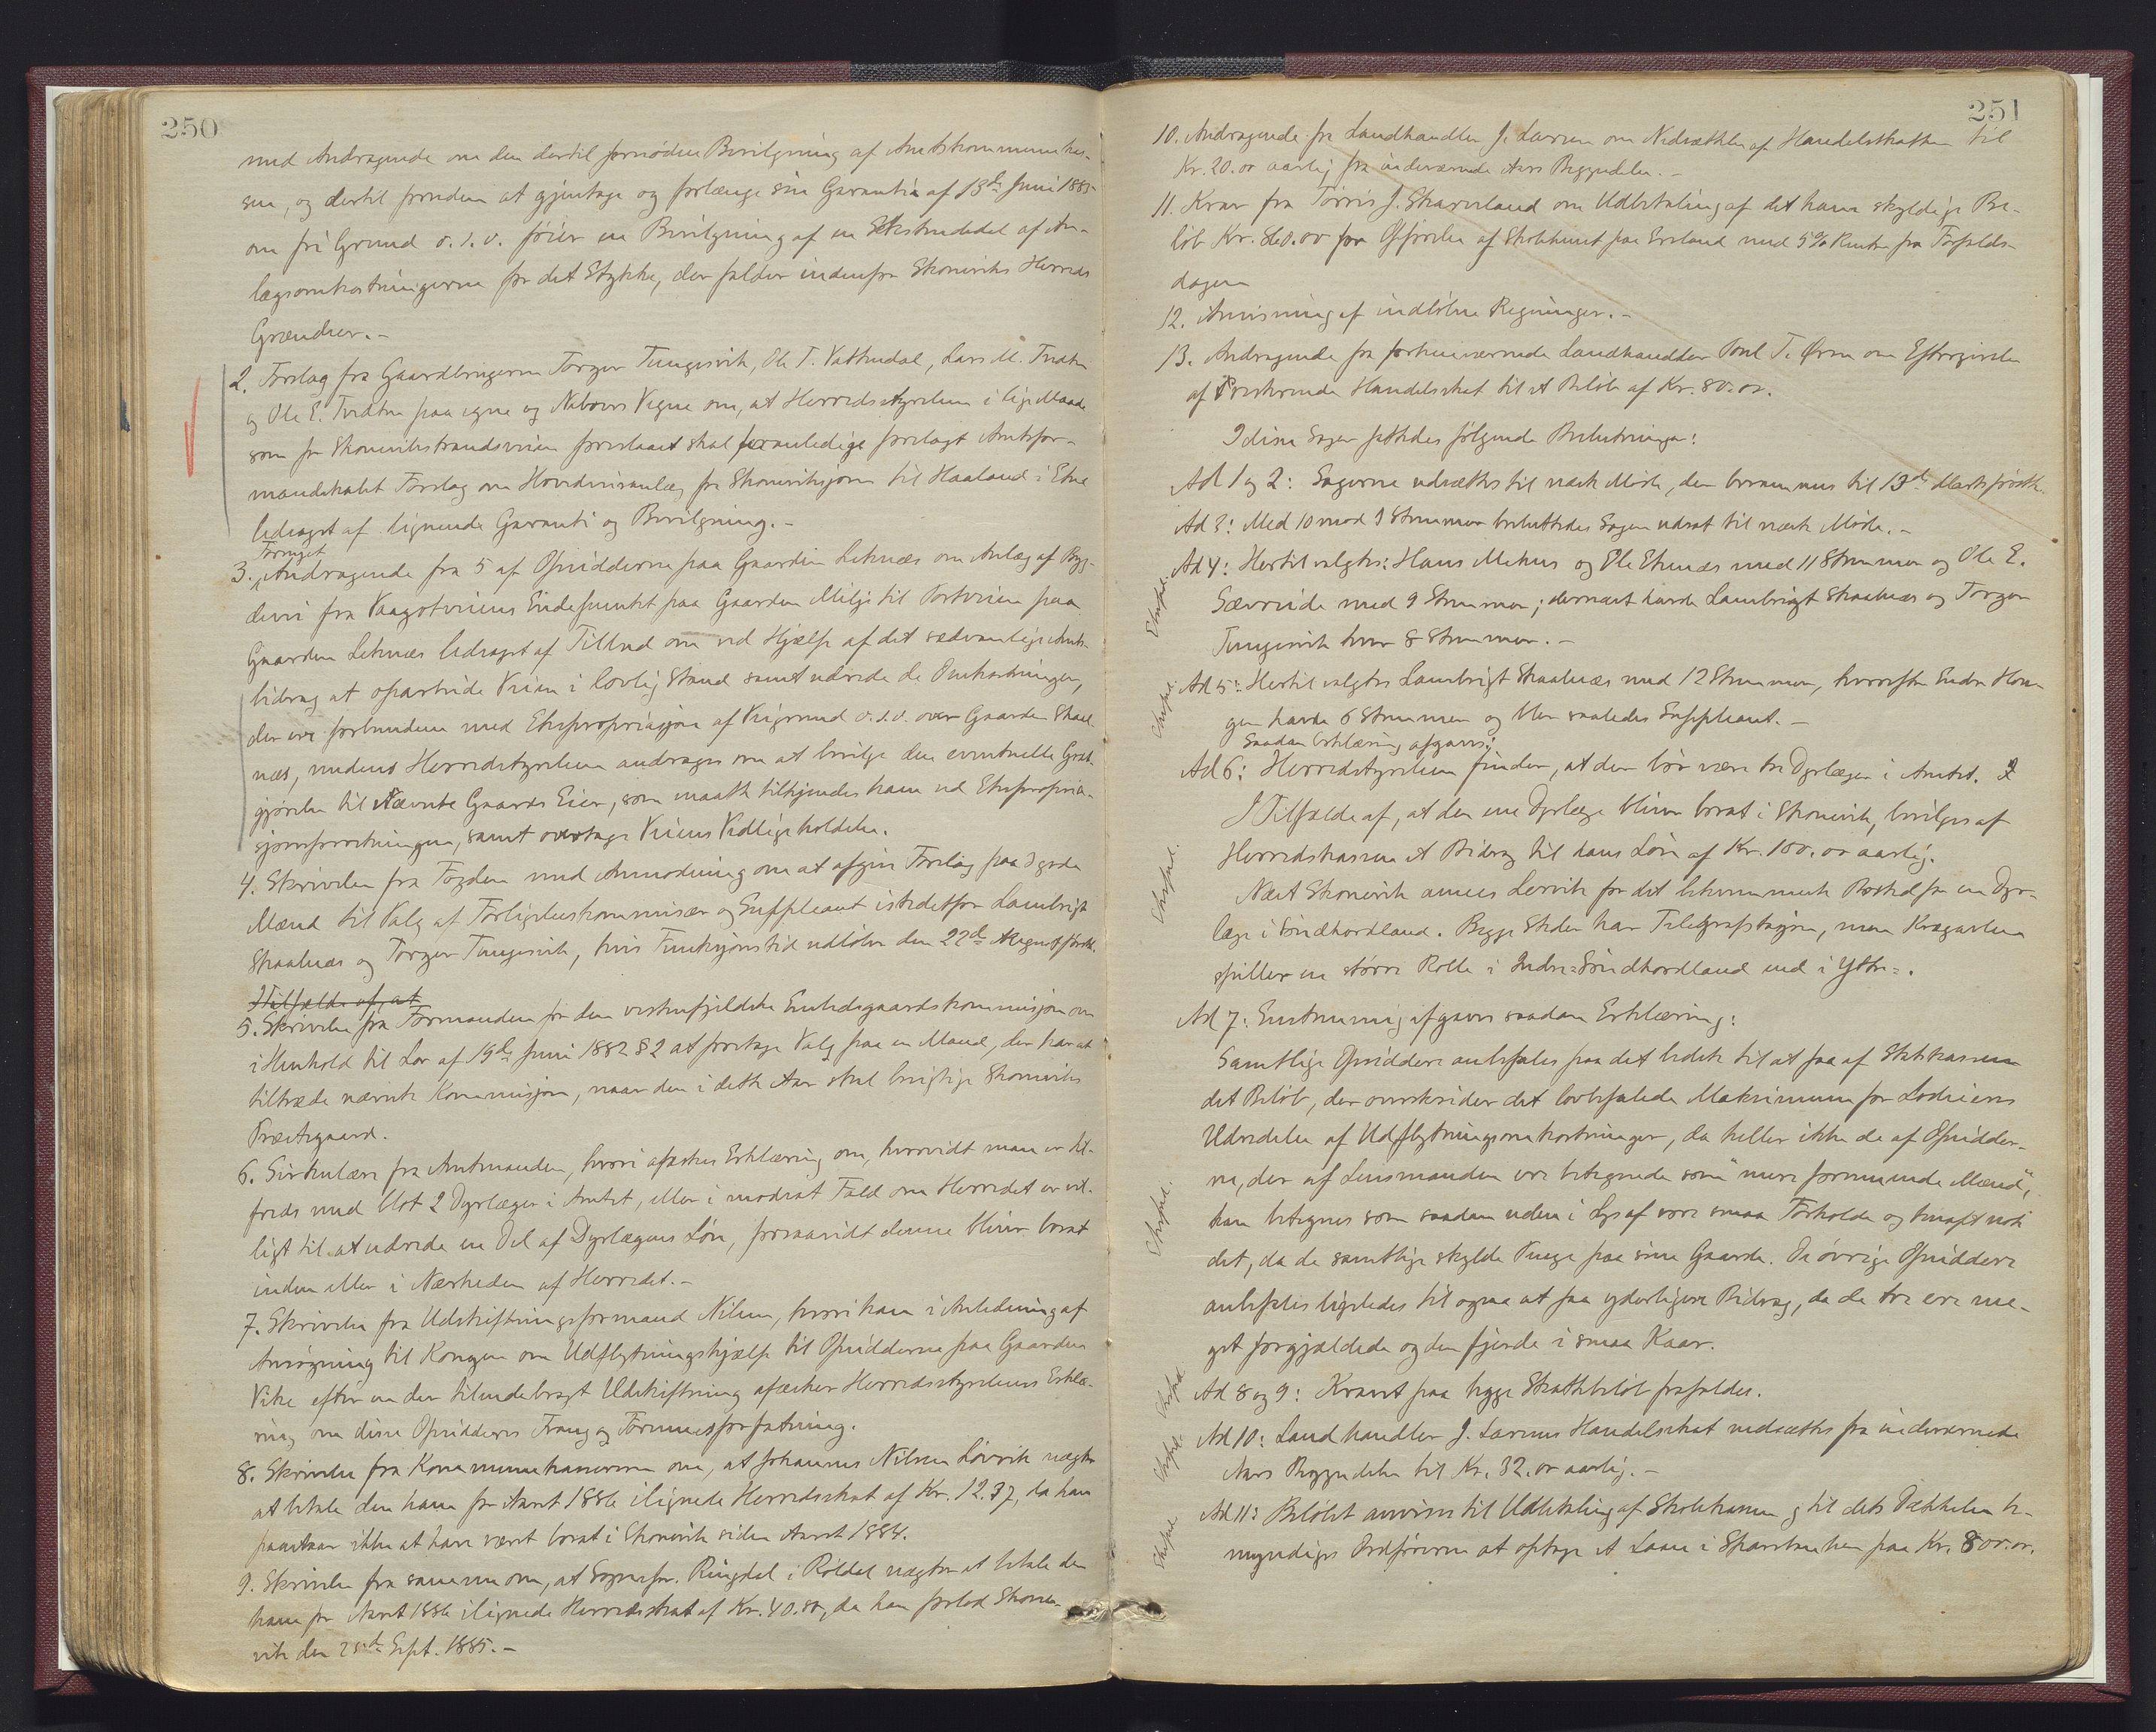 250
med Andragende om den dertil fornødne Bevilgning af Amtskommunekas-
sen, og dertil foruden at gjentage og forlænge sin Garanti af 13de Juni 1885
om fri Grund o. s. v. føier en Bevilgning af en Sekstendedel af An-
lægsomkostningerne for det Stykke, der falder indenfor Skoneviks Herreds
Grændser. -
2. Forslag fra Gaardbrugerne Torger Tungesvik, Ole T. Vattendal, Lars M. Tvedten
og Ole E. Tvedten paa egne og Naboers Vegne om, at Herredsstyrelsen i lige Maade
som for Skonevikstrandsveien foreslaaet skal foranledige forelagt Amtsfor-
mandskabet Forslag om Hovedveisanlæg fra Skoneviksjøen til Haaland i Etne
ledsaget af lignende Garanti og Bevilgning. -
Fornyet
3. Andragende fra 5 af Opsidderne paa Gaarden Leknæs om Anlæg af Byg-
devei fra Vaagotveiens Endepunkt paa Gaarden Milje til Postveien paa
Gaarden Leknæs ledsaget af Tilbud om ved Hjælp af det sedvanlige Amts-
bidrag at oparbeide Veien i lovlig Stand samt udrede de Omkostninger,
der ere forbundne med Ekspropriasjon af Veigrund o. s. v. over Gaarden Skaal-
næs, medens Herredsstyrelsen andrages om at bevilge den eventuelle Godt-
gjørelse til nævnte Gaards Eier, som maatte tilkjendes ham ved Ekspropria-
sjonsforretningen, samt overtage Veiens Vedligeholdelse.
4. Skrivelse fra Fogden med Anmodning om at afgive Forslag paa dygtige
Mænd til Valg af Forligelseskommissær og Suppleant istedetfor Lambrigt
Skaalnæs og Torger Tungesvik, hvis Funksjonstid udløber den 22de August førstk.
I Tilfælde af, at
5. Skrivelse fra Formanden for den vestenfjeldske Embedsgaardskommisjon om
i Henhold til Lov af 19de Juni 1882 § 2 at foretage Valg paa en Mand, der har at
tiltræde nævnte Kommisjon, naar den i dette Aar skal besigtige Skoneviks
Præstegaard.
6. Sirkulære fra Amtmanden, hvori afæskes Erklæring om, hvorvidt man er til-
freds med blot 2 Dyrlæger i Amtet, eller i modsat Fald om Herredet er vil-
ligt til at udrede en Del af Dyrlægens Løn, forsaavidt denne bliver bosat
inden eller i Nærheden af Herredet. -
7. Skrivelse fra Udskiftningsformand Nilsen, hvori han i Anledning af
Ansøgning til Kongen om Udflytningshjælp til Opsidderne paa Gaarden
Vike efter en der tilendebragt Udskiftning afæsker Herredsstyrelsens Erklæ-
ring om disse Opsidderes Trang og Formuesforfatning.
8. Skrivelse fra Kommunekassereren om, at Johannes Nilsen Løvvik nægter
at betale den ham for Aaret 1886 ilignede Herredsskat af Kr. 12.37, da han
paastaar ikke at have været bosat i Skonevik siden Aaret 1884.
9. Skrivelse fra samme om, at Sognepr. Ringdal i Røldal nægter at betale den
ham for Aaret 1886 ilignede Herredsskat af Kr. 40.80, da han forlod Skone-
vik den 25de Sept. 1885. -
251
10. Andragende fra Landhandler J. Larsen om Nedsættelse af Handelsskatten til
Kr. 20.00 aarlig fra indeværende Aars Begyndelse. -
11. Krav fra Tørris J. Skaveland om Udbetaling af det ham skyldige Be-
løb Kr. 860.00 for Opførelse af Skolehuset paa Ersland med 5% Renter fra Forfalds-
dagen
12. Anvisning af indløbne Regninger. -
13. Andragende fra forhenværende Landhandler Poul T. Ørn om Eftergivelse
af Resterende Handelsskat til et Beløb af Kr. 80.00.
I disse Sager fattedes følgende Beslutninger:
Ad 1 og 2: Sagerne udsættes til næste Møde, den berammes til 13de Marts førstk.
Ad 3: Med 10 mod 9 Stemmer besluttedes Sagen udsat til næste Møde. -
Ad 4: Hertil valgtes: Hans Mehus og Ole Etnæs med 11 Stemmer og Ole E.
Sævreide med 9 Stemmer; dernæst havde Lambrigt Skaalnæs og Torger
Tungesvik hver 8 Stemmer. -
Ekspd.
Ad 5: Hertil valgtes Lambrigt Skaalnæs med 12 Stemmer, hvorefter Endre Hau-
gen havde 6 Stemmer og blev saaledes Suppleant. -
Ekspd.
Saadan Erklæring afgaves:
Ad 6: Herredsstyrelsen finder, at der bør være tre Dyrlæger i Amtet.
I Tilfælde af, at den ene Dyrlæge bliver bosat i Skonevik, bevilges af
Herredskassen et Bidrag til hans Løn af Kr. 100.00 aarlig.
Næst Skonevik ansees Lervik for det bekvemmeste Bosted for en Dyr-
læge i Søndhordland. Begge Steder har Telegrafstasjon, men Kvægavlen
spiller en større Rolle i Indre-Søndhordland end i Ytre-.
Ekspd.
Ad 7: Enstemmig afgaves saadan Erklæring:
Samtlige Opsiddere anbefales paa det bedste til at faa af Statskassen
det Beløb, der overskrider det lovbefalede Maksimum for Lodeiers
Udredelse af Udflytningsomkostninger, da heller ikke de af Opsidder-
ne, der af Lensmanden ere betegnede som "mere formuende Mænd",
kan betegnes som saadan uden i Lys af vore smaa Forholde og knapt nok
det, da de samtlige skylde Penge paa sine Gaarde. De øvrige Opsiddere
anbefales ligeledes til ogsaa at faa yderligere Bidrag, da de tre ere me-
get forgjældede og den fjerde i smaa Kaar.
Ekspd.
Ad 8 og 9: Kravet paa begge Skattebeløb frafaldes.
Ekspd.
Ad 10: Landhandler J. Larsens Handelsskat nedsættes fra indeværende
Aars Begyndelse til Kr. 32.00 aarlig. -
Ekspd.
Ad 11: Beløbet anvises til Udbetaling af Skolekassen og til dets Dækkelse be-
myndiges Ordføreren at optage et Laan i Sparebanken paa Kr. 800.00.
Ekspd.